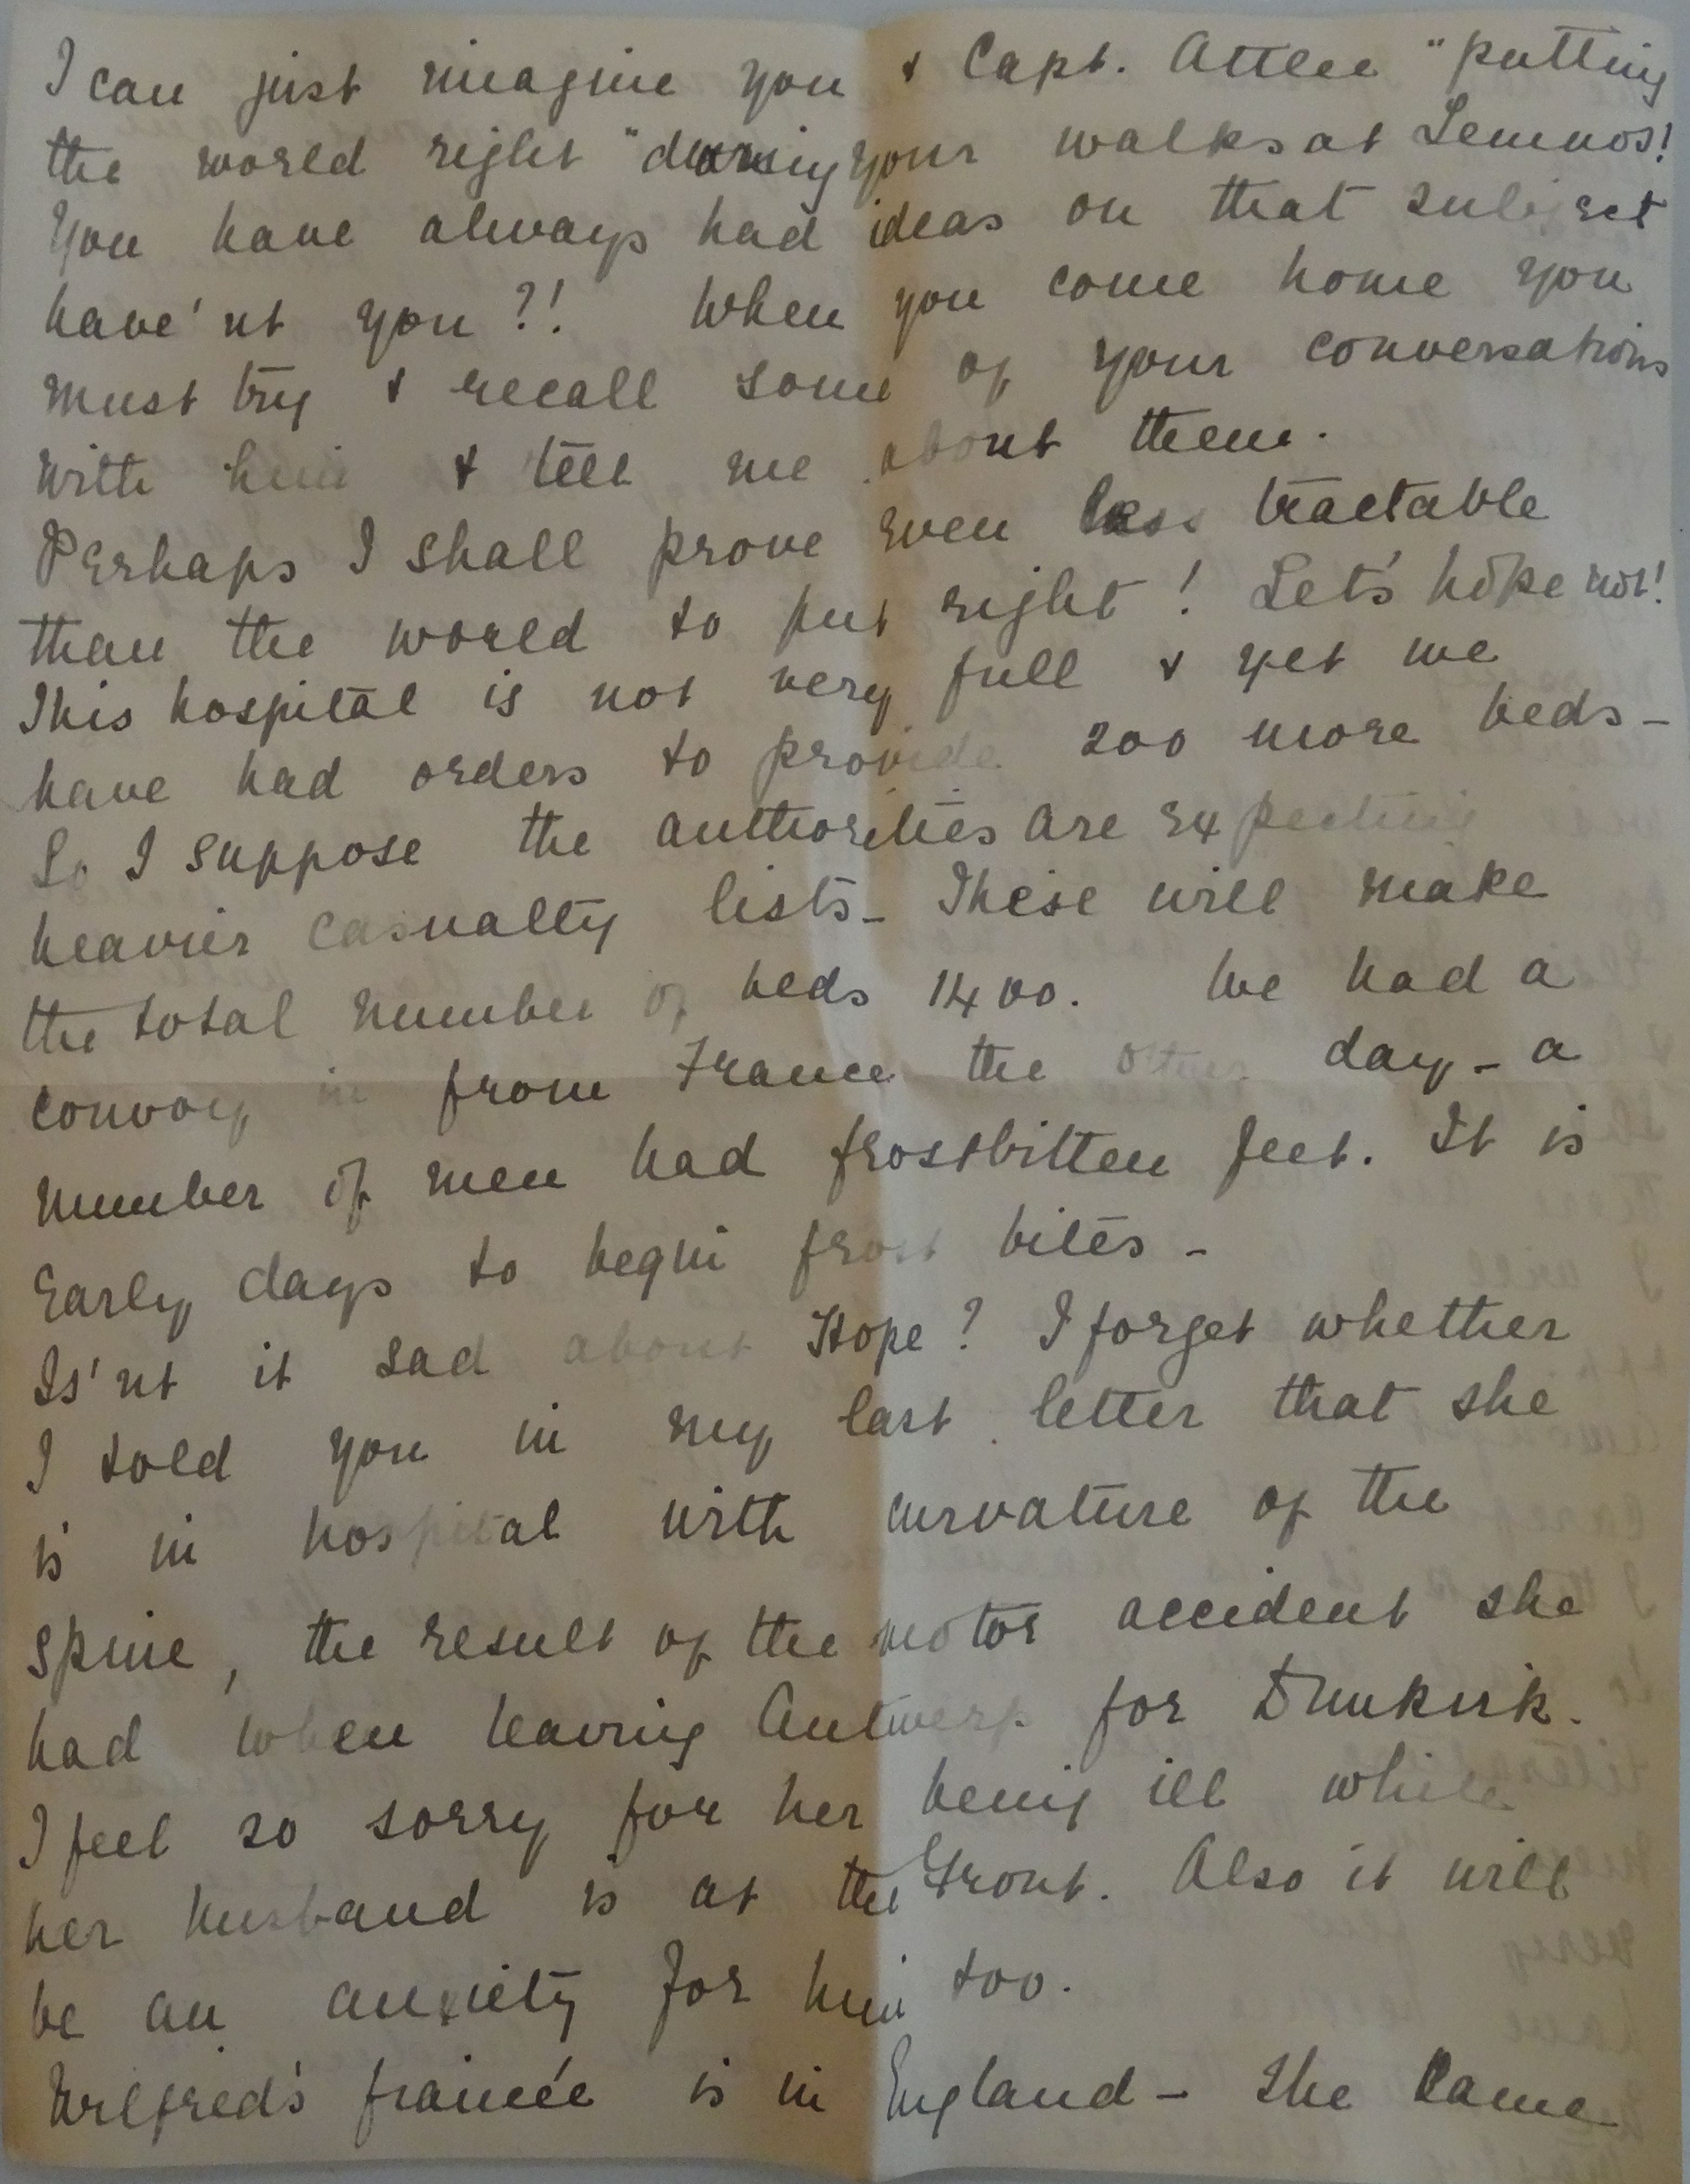 I can just imagine you & Capt. Attlee "putting
the world right" during your walks at Lemnos!
You have always had ideas on that subject
have'nt you?! When you come home you
must try & recall some of your conversations
with him & tell me about them.
Perhaps I shall prove even less tractable
than the world to put right! Let's hope not!
This hospital is not very full & yet we
have had orders to provide 200 more beds –
So I suppose the authorities are expecting
heavier casualty lists – These will make
the total number of beds 1400. We had a
convoy in from France the other day – a
number of men had frostbitten feet. It is
early days to begin frost bites –
Is'nt it sad about Hope? I forget whether
I told you in my last letter that she
is in hospital with curvature of the
spine, the result of the motor accident she
had when leaving Antwerp for Dunkirk.
I feel so sorry for her being ill while
her husband is at the Front. Also it will
be an anxiety for him too.
Wilfred's fiancée is in England – She came